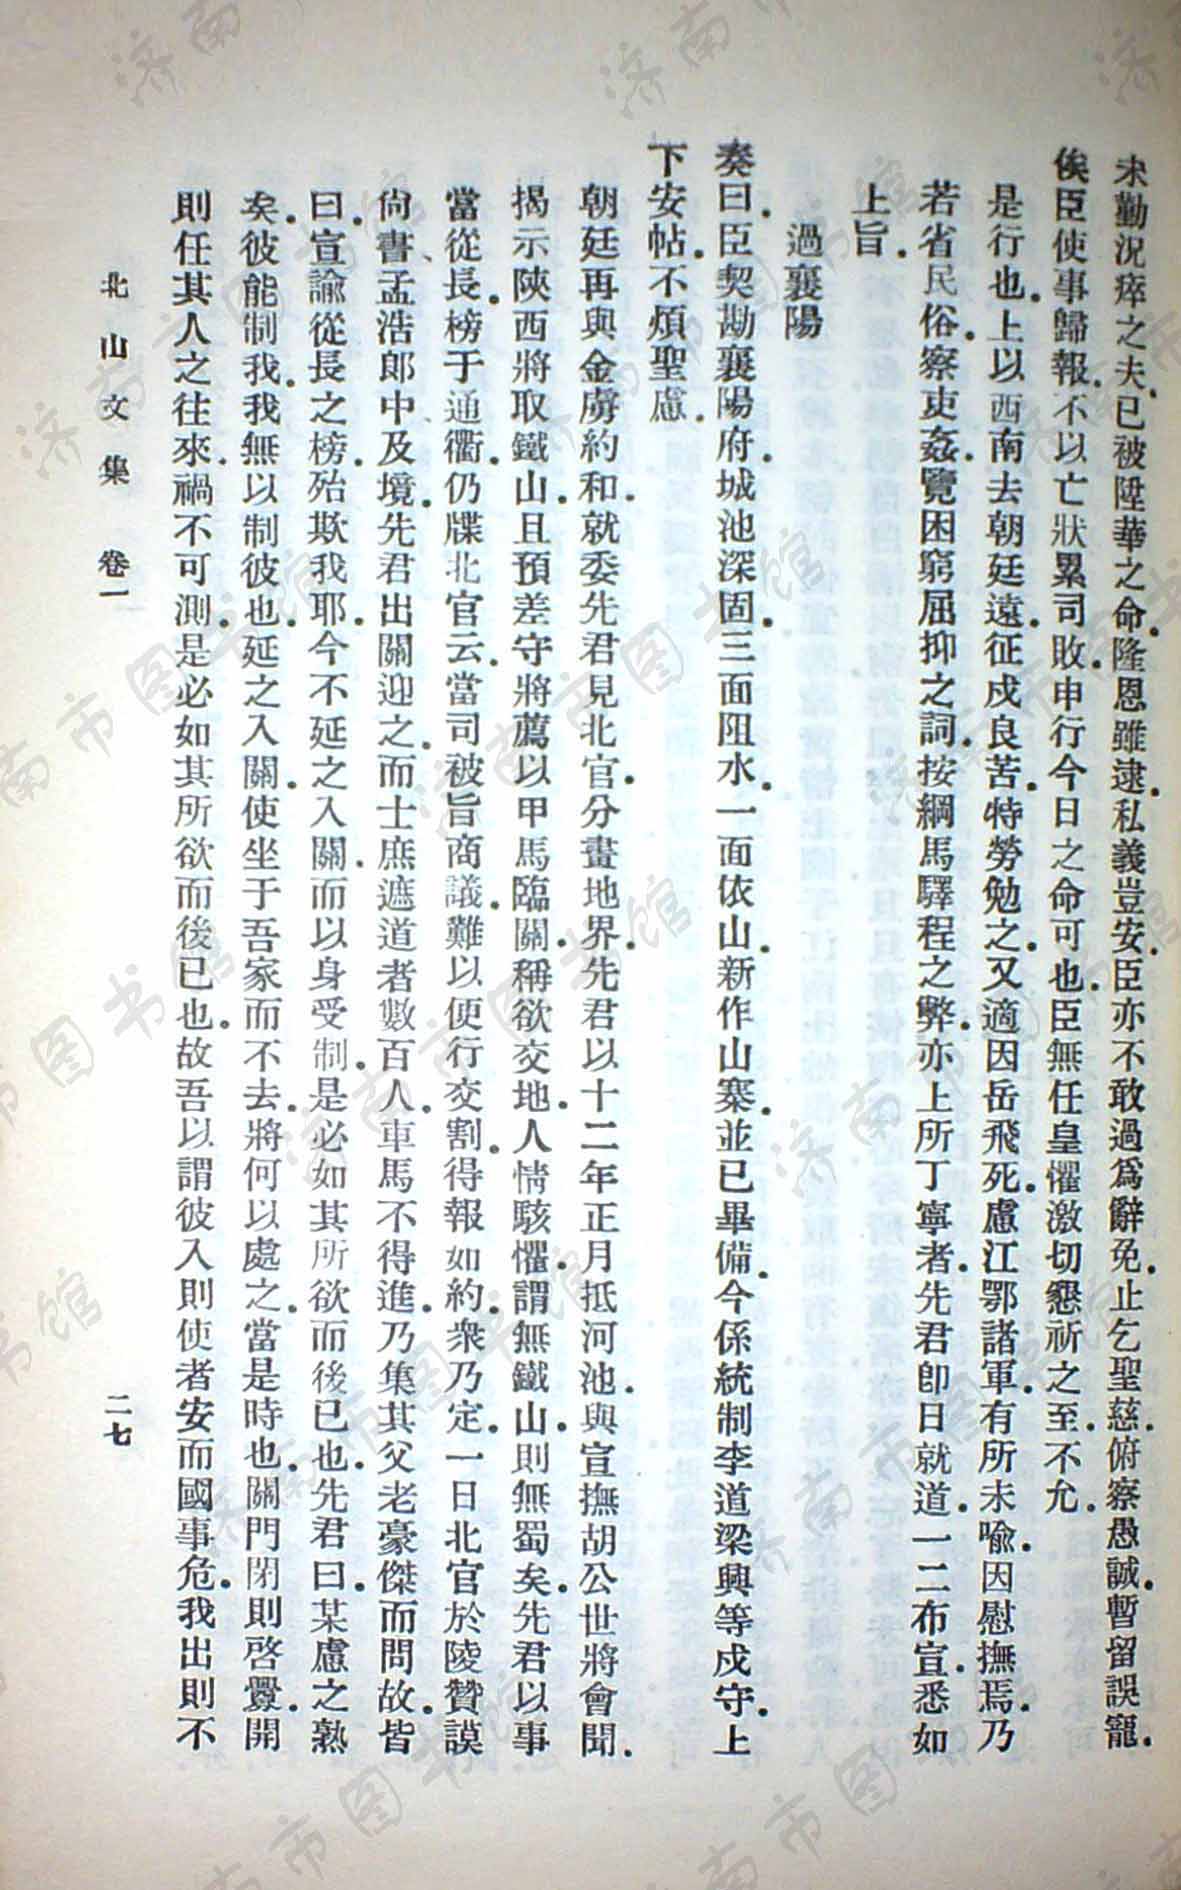 未勤況瘁之夫.已被陞華之命.隆恩雖逮.私義豈安.臣亦不敢過爲辭免.止乞聖慈.俯察愚誠.暫留誤寵.
俟臣使事歸報.不以亡狀累司敗.申行今日之命可也.臣無任皇懼激切懇祈之至.不允.
是行也.上以西南去朝廷遠.征戍良苦.特勞勉之.又適因岳飛死.慮江鄂諸軍.有所未喻.因慰撫焉.乃
若省民俗.察吏姦.覽困窮屈抑之詞.按綱馬驛程之弊.亦上所丁寧者.先君卽日就道.一二布宣.悉如
上旨.
過襄陽
奏曰.臣契勘襄陽府.城池深固.三面阻水.一面依山.新作山寨.並已畢備.今係統制李道梁興等戍守.上
下安帖.不煩聖慮.
朝廷再與金虜約和.就委先君見北官.分畫地界.先君以十二年正月抵河池.與宣撫胡公世將會聞.
揭示陝西將取鐵山.且預差守將薦以甲馬臨關.稱欲交地.人情駭懼.謂無鐵山.則無蜀矣.先君以事
當從長.榜于通衢.仍牒北官云.當司被旨商議.難以便行交割.得報如約.衆乃定.一日北官於陵贊謨
尙書.孟浩郎中及境.先君出關迎之.而士庶遮道者數百人.車馬不得進.乃集其父老豪傑而問故.皆
曰.宣諭從長之榜.殆欺我耶.今不延之入關.而以身受制.是必如其所欲而後已也.先君曰.某慮之熟
矣.彼能制我.我無以制彼也.延之入關.使坐于吾家而不去.將何以處之.當是時也.關門閉則啓釁.開
則任其人之往來.禍不可測.是必如其所欲而後已也.故吾以謂彼入則使者安而國事危.我出則不
北山文集 卷一
二七